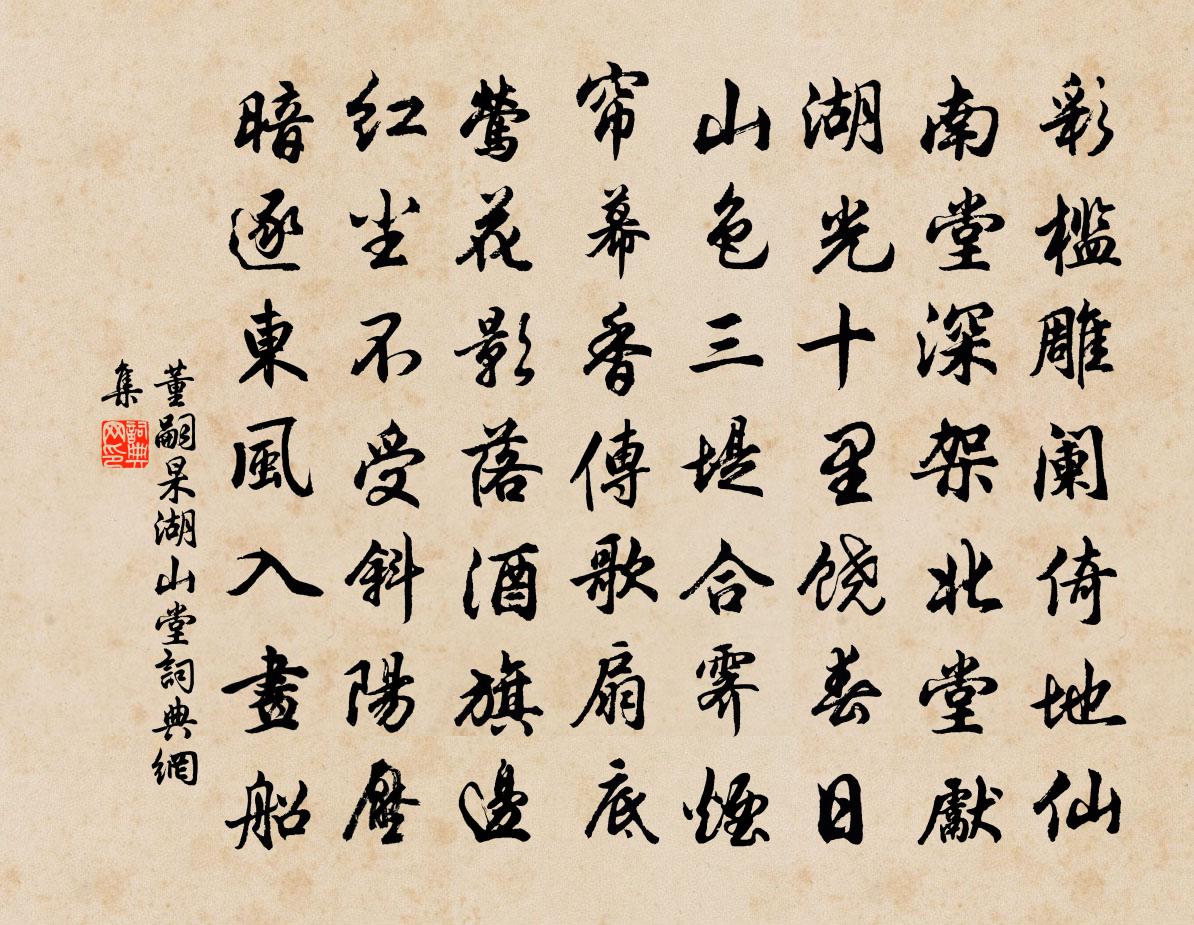 彩槛雕阑倚地仙
南堂深架北堂獻
湖光十里饶春日
山色三堤合霽煙
帘幕香傳歌扇底
莺花影落酒旗邊
红尘不受斜陽壓
暗逐東風入畫船
董嗣杲湖山堂詞典網
集
詞典
网印